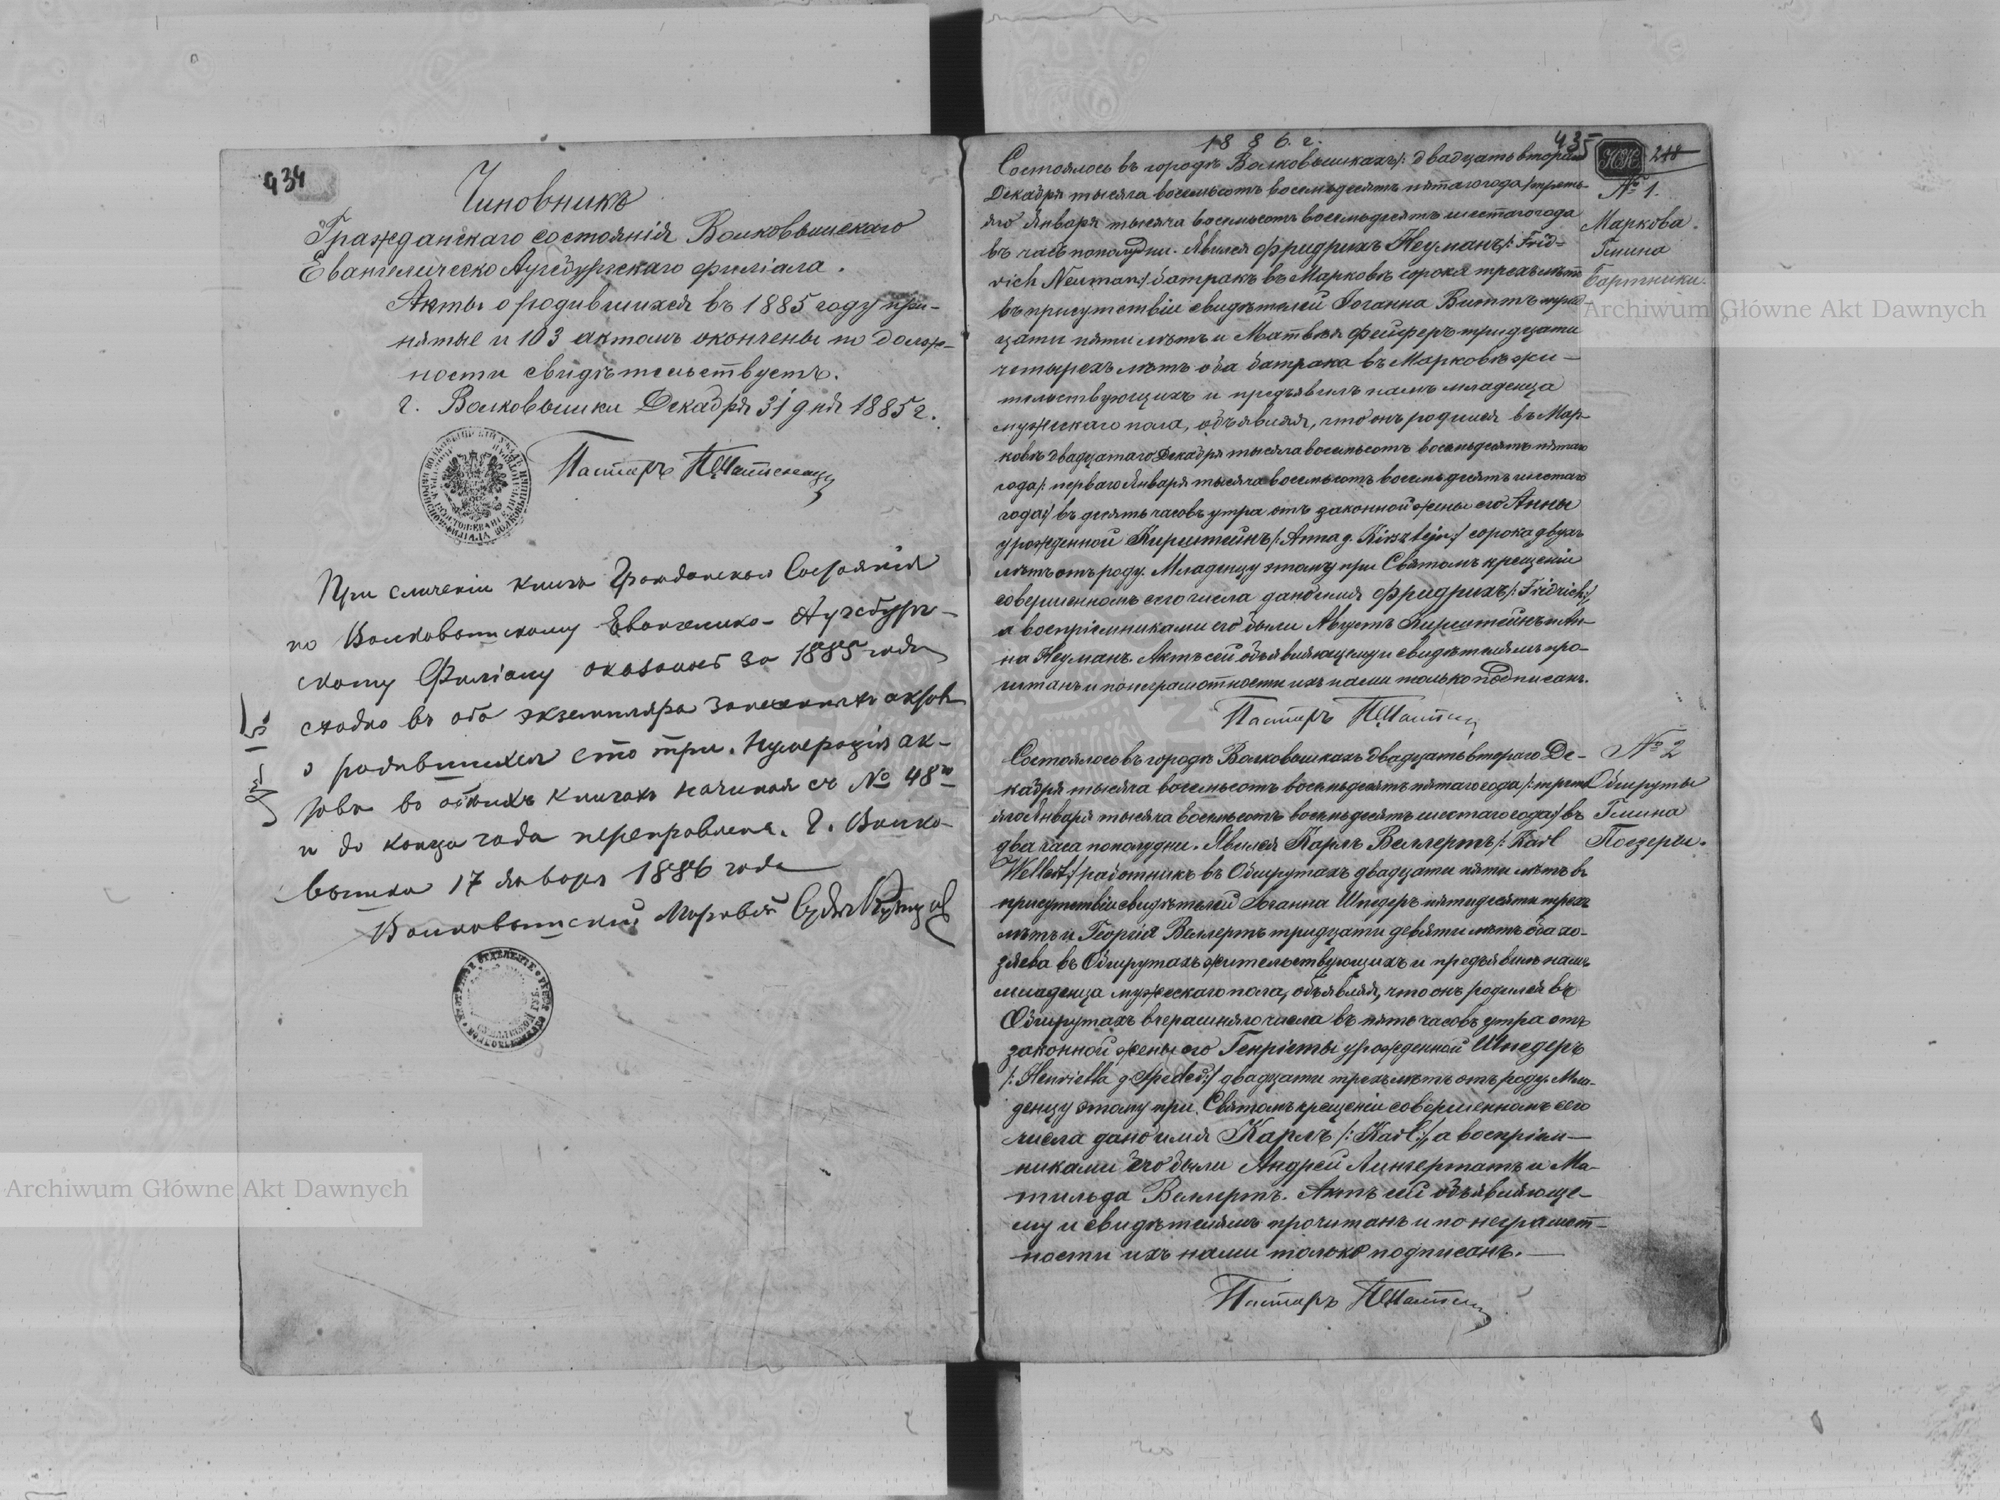 434
Чиновникъ
Гражданскаго состоянія Волковышскаго
Евангелическо Аугсбургскаго филіала.
Акты о родившихся въ 1885 году при-
нятые и 103 актомъ окончены по долж-
ности свидѣтельствуетъ.
г. Волковышки Декабря 31 дня 1885 г.
Пасторъ
При сличеніи книгъ Гражданскаго Состоянія
по Волковышскому Евангелико-Аугсбург-
скому Филіалу оказалось за 1885 годъ
сходно въ оба экземпляра актовъ
о родившихся сто три. Нумерація ак-
товъ во обѣихъ книгахъ начиная съ № 48
и до конца года переправлена. Г. Волко-
вышки 17 Января 1886 года
Волковышскій Мировой Судья
1886. г.
435
248
Состоялось въ городѣ Волковышкахъ двадцать втораго
Декабря тысяча восемьсотъ восемьдесятъ пятаго года /: треть-
яго Января тысяча восемьсотъ восемьдесятъ шестаго года
въ часъ пополудни. Явился Фридрихъ Нейманъ /: Frid-
rich Neuman :/ батракъ въ Марковѣ сорока трехъ лѣтъ
въ присутствіи свидѣтелей Іоганна Виттъ трид-
цати пяти лѣтъ и Матвѣя Фейферъ тридцати
четырехъ лѣтъ оба батрака въ Марковѣ жи-
тельствующихъ и предъявилъ намъ младенца
мужескаго пола, объявляя, что онъ родился въ Мар-
ковѣ двадцатаго Декабря тысяча восемьсотъ восемьдесятъ пятаго
года /: перваго Января тысяча восемьсотъ восемьдесятъ шестаго
года :/ въ десять часовъ утра отъ законной жены его Анны
урожденной Кирштейнъ /: Anna g. Kirsztejn :/ сорока двухъ
лѣтъ отъ роду. Младенцу этому при Святомъ крещеніи
совершенномъ сего числа дано имя Фридрихъ /: Fridrich :/
а воспріемниками его были Августъ Кирштейнъ и Ан-
на Нейманъ. Актъ сей объявляющему и свидѣтелямъ про-
читанъ и по неграмотности ихъ нами только подписанъ.
Пасторъ
№ 1.
Маркова.
Гмина
Бартники.
Состоялось въ городѣ Волковышкахъ двадцать втораго Де-
кабря тысяча восемьсотъ восемьдесятъ пятаго года /: треть
яго Января тысяча восемьсотъ восемьдесятъ шестаго года :/ въ
два часа пополудни. Явился Карлъ Веллертъ /: Karl
Wellert :/ работникъ въ Обшрутахъ двадцати пяти лѣтъ въ
присутствіи свидѣтелей Іоганна Шпедеръ пятидесяти трехъ
лѣтъ и Георгія Веллертъ тридцати девяти лѣтъ оба хо-
зяева въ Обшрутахъ жительствующихъ и предъявилъ намъ
младенца мужескаго пола, объявляя, что онъ родился въ
Обшрутахъ вчерашняго числа въ пять часовъ утра отъ
законной жены его Генріеты урожденной Шпедеръ
/: Henrietta g. Speder :/ двадцати трехъ лѣтъ отъ роду. Мла-
денцу этому при Святомъ крещеніи совершенномъ сего
числа дано имя Карлъ /: Karl :/, а воспріем-
никами его были Андрей Лингертатъ и Ма-
тильда Веллертъ. Актъ сей объявляюще-
му и свидѣтелямъ прочитанъ и по неграмот-
ности ихъ нами только подписанъ.
Пасторъ
№ 2
Обшруты
Гмина
Поезеры.
Archiwum Główne Akt Dawnych
Archiwum Główne Akt Dawnych